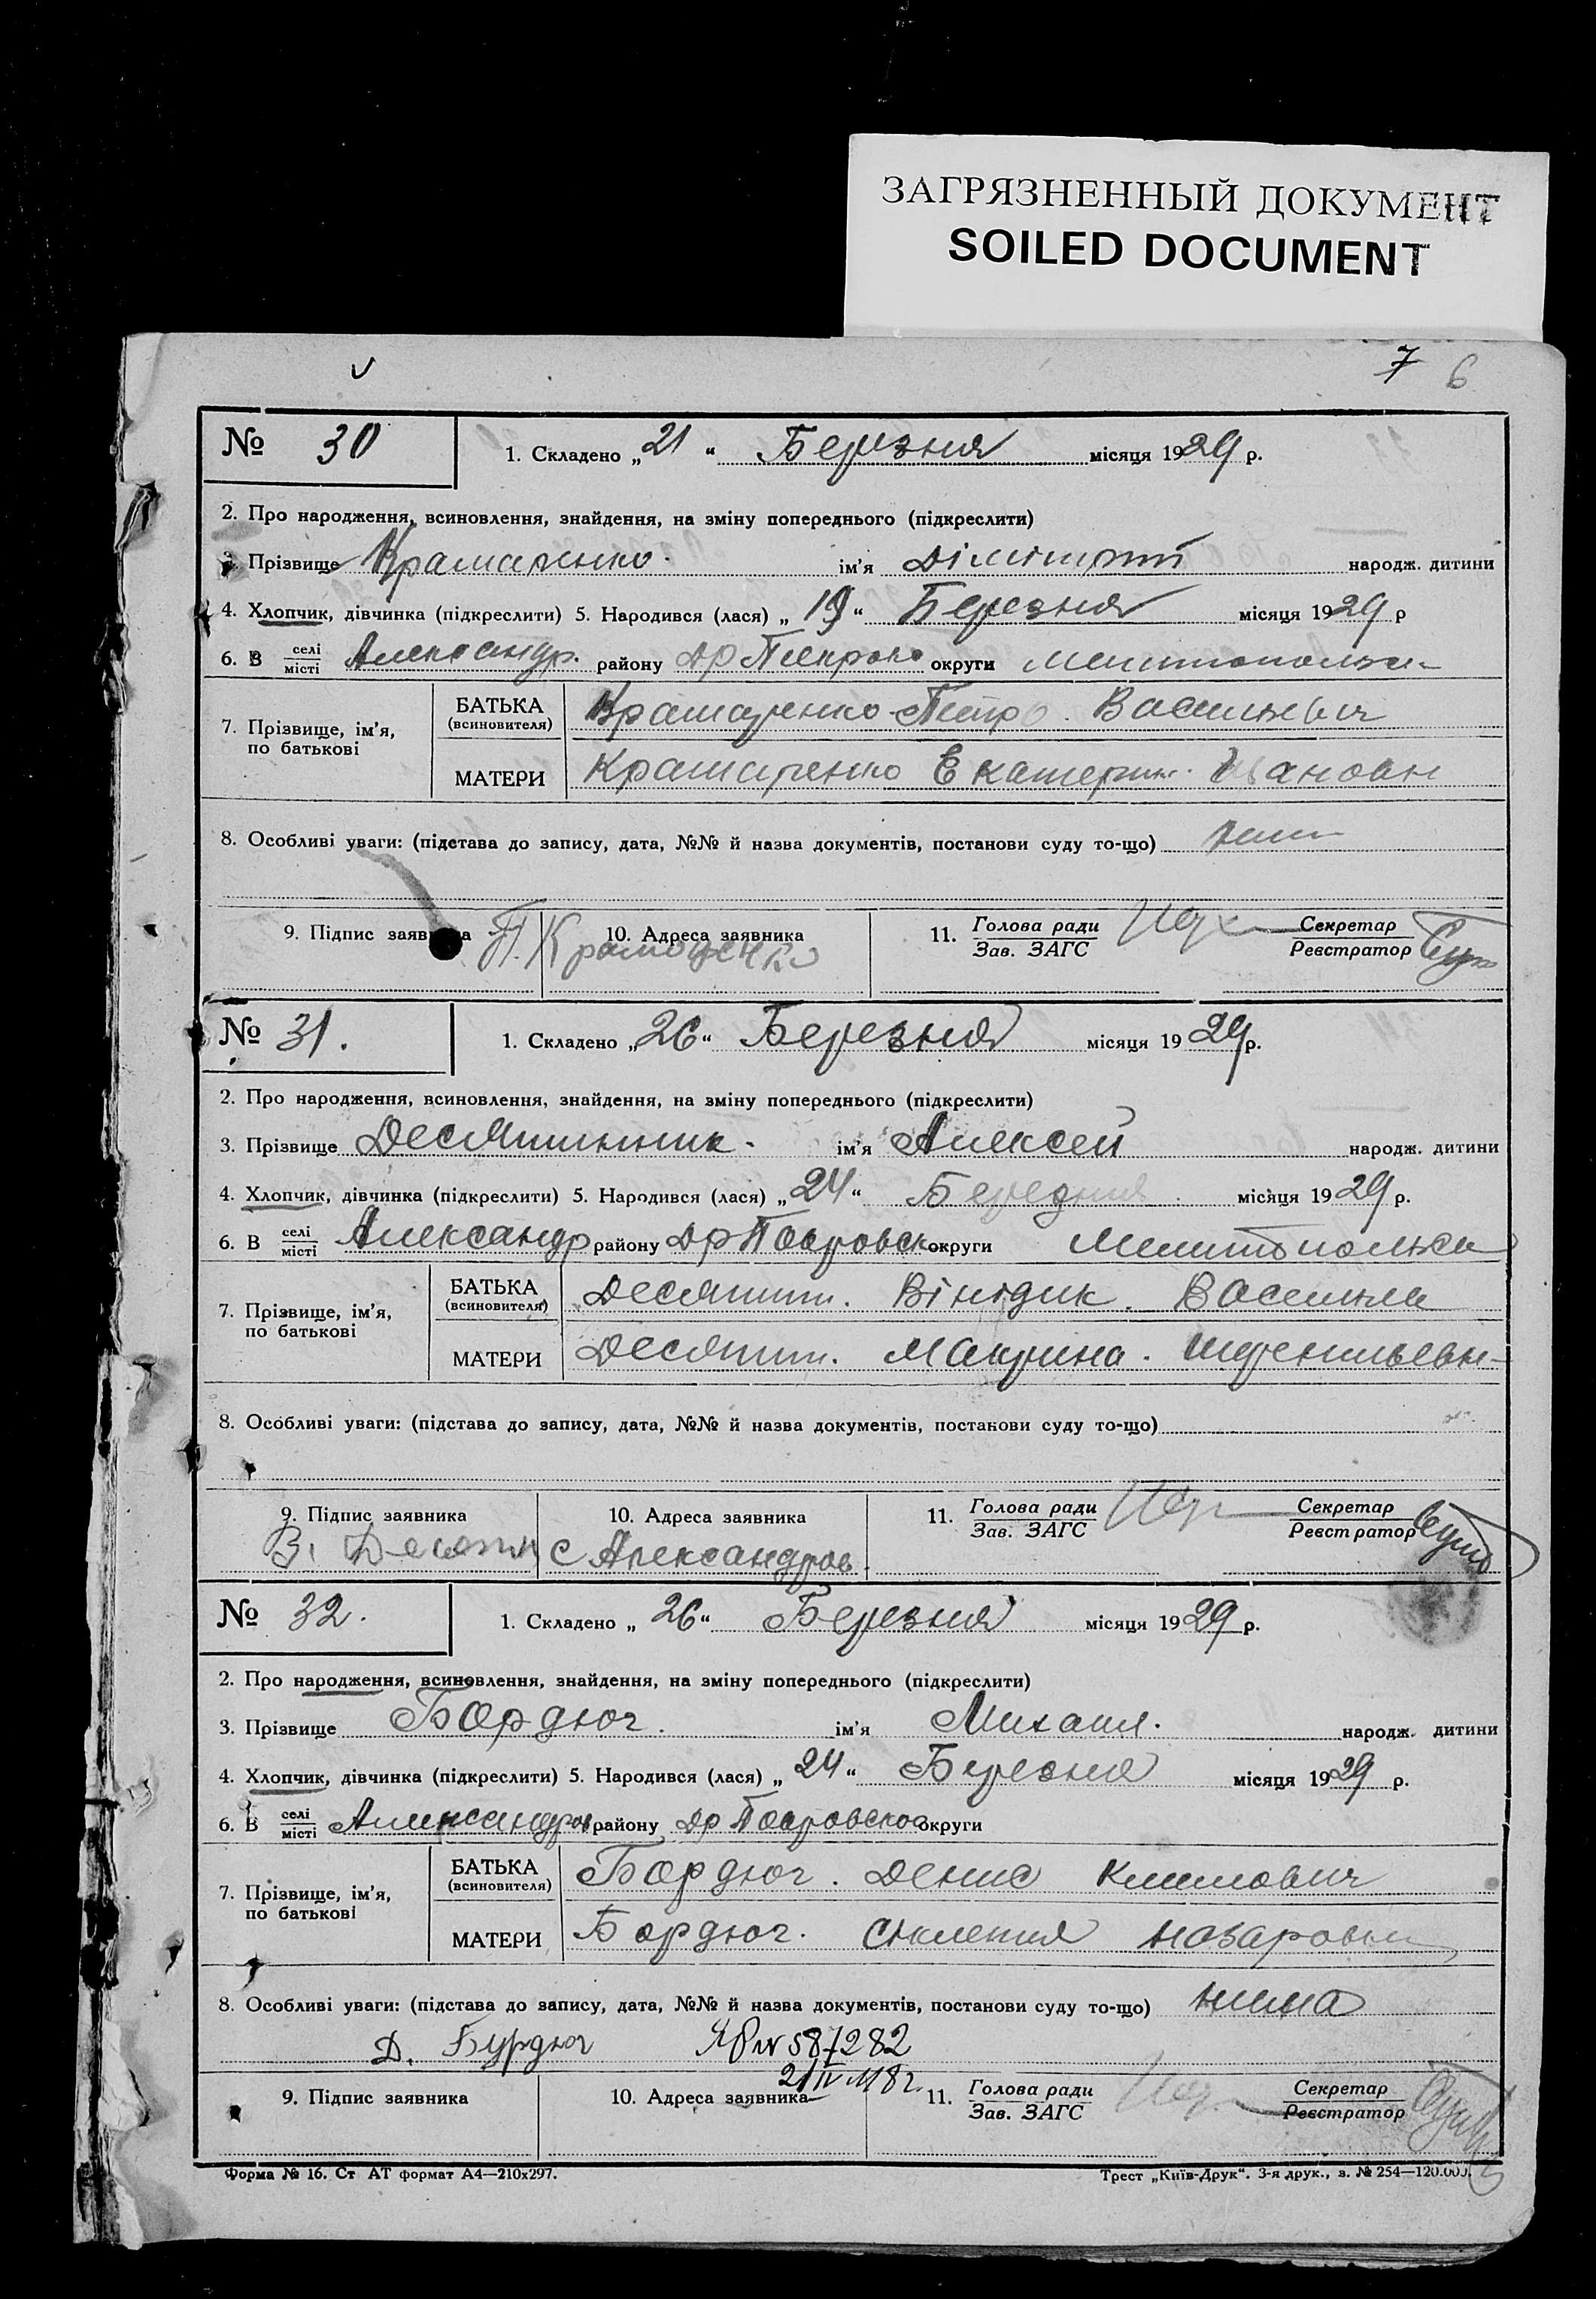 ЗАГРЯЗНЕННЫЙ ДОКУМЕНТ
SOILED DOCUMENT
7 6
№ 30
1. Складено „21“ Березня місяця 1929 р.
2. Про народження, всиновлення, знайдення, на зміну попереднього (підкреслити)
3. Прізвище Крамаренко. ім'я Дімітрій народж. дитини
4. Хлопчик, дівчинка (підкреслити) 5. Народився (лася) „19“ Березня місяця 1929 р
6. В селі/місті Александр. району округи
7. Прізвище, ім'я, по батькові
БАТЬКА (всиновителя) Крамаренко Петро. Васильевич
МАТЕРИ Крамаренко Екатерин. Іванован
8. Особливі уваги: (підстава до запису, дата, №№ й назва документів, постанови суду то-що)
9. Підпис заявника П. Крамаренко 10. Адреса заявника 11. Голова ради/Зав. ЗАГС Секретар/Реєстратор
№ 31.
1. Складено „26“ Березня місяця 1929 р.
2. Про народження, всиновлення, знайдення, на зміну попереднього (підкреслити)
3. Прізвище Десятинник. ім'я Алексей народж. дитини
4. Хлопчик, дівчинка (підкреслити) 5. Народився (лася) „24“ Березня місяця 1929 р.
6. В селі/місті Александр району Др Покровск округи Мелитопольск
7. Прізвище, ім'я, по батькові
БАТЬКА (всиновителя) Десятин. Вінідик. Василів
МАТЕРИ Десятин. Макрина.
8. Особливі уваги: (підстава до запису, дата, №№ й назва документів, постанови суду то-що)
9. Підпис заявника 10. Адреса заявника 11. Голова ради/Зав. ЗАГС Секретар/Реєстратор
В. Десятин с Александров.
№ 32.
1. Складено „26“ Березня місяця 1929 р.
2. Про народження, всиновлення, знайдення, на зміну попереднього (підкреслити)
3. Прізвище Бордюг. ім'я Михаил. народж. дитини
4. Хлопчик, дівчинка (підкреслити) 5. Народився (лася) „24“ Березня місяця 1929 р.
6. В селі/місті Александров району Др Покровског округи
7. Прізвище, ім'я, по батькові
БАТЬКА (всиновителя) Бордюг. Денис Климович
МАТЕРИ Бордюг. Назаровн
8. Особливі уваги: (підстава до запису, дата, №№ й назва документів, постанови суду то-що)
Д. Бурдюг № 587282
9. Підпис заявника 10. Адреса заявника 11. Голова ради/Зав. ЗАГС Секретар/Реєстратор
Форма № 16. Ст АТ формат А4—210х297.
Трест „Київ-Друк“. 3-я друк., з. № 254—120.000.